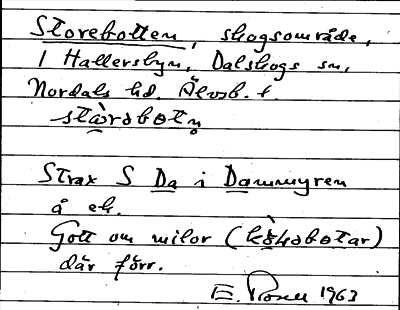 Storebotten, skogsområde,
i Hallersbyn, Dalskogs sn,
Nordals hd. Älvsb. l.
stὼrəbotṇ
Strax S Da i Dammyren
å ek.
Gott om milor (
där förr.
E. 1963